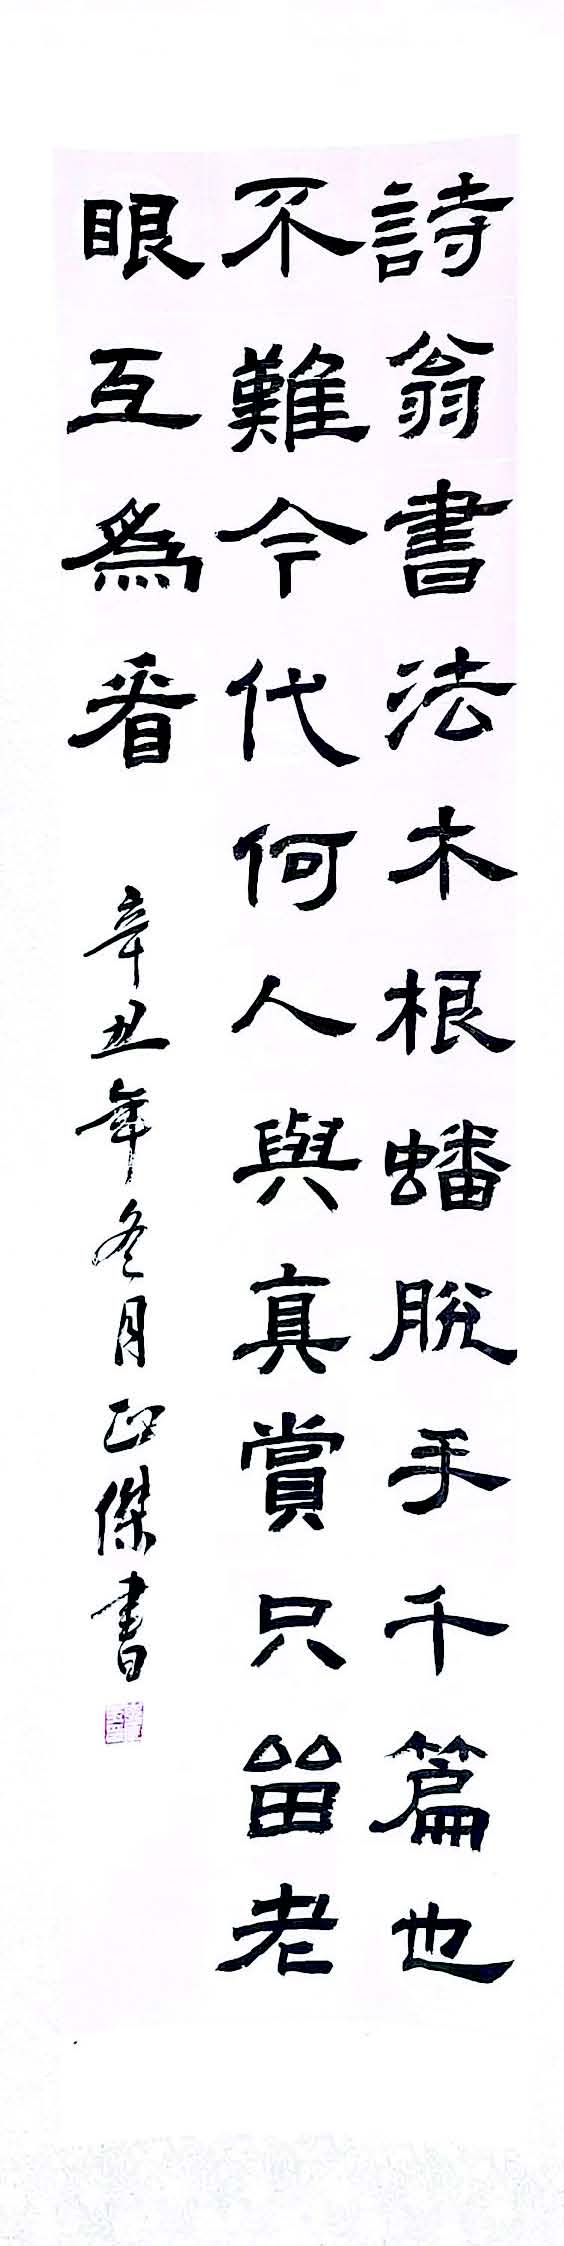 詩翁書法木根蟠脫手千篇也
不難今代何人與真賞只留老
眼互為看
辛丑年冬月正傑書